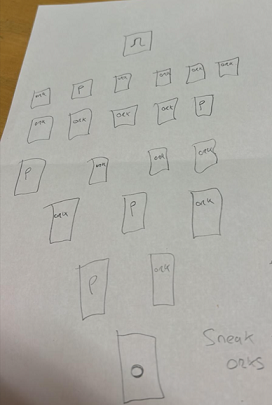 Ω
ork P ork ork ork ork
ork ork ork ork P
P ork ork ork
ork P ork
P ork
O
Sneak
orks